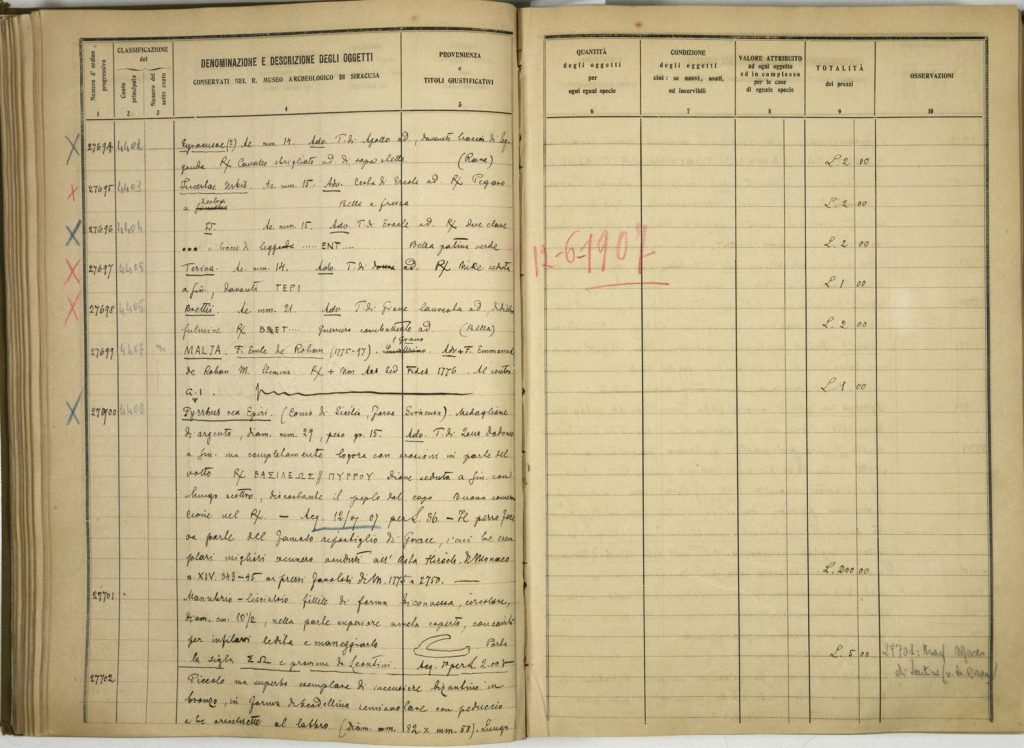 Numero d'ordine progressivo
CLASSIFICAZIONE del
Conto principale
Numero del sotto conto
DENOMINAZIONE E DESCRIZIONE DEGLI OGGETTI
CONSERVATI NEL R. MUSEO ARCHEOLOGICO DI SIRACUSA
PROVENIENZA
e
TITOLI GIUSTIFICATIVI
1 2 3 4 5
27694 4402 Syracusae (?) Ae mm. 14. Adv. T. di Apollo ad, davanti tracce di leg
genda Rx Cavallo sbrigliato ad. di sopra stella (Rara)
27695 4403 Ae. mm. 15. Adv. Testa di Ercole ad. Rx Pegaso
a Bella e fresca
27696 4404 Id. Ae. mm. 15. Adv. T. di Eracle ad. Rx due clave
e tracce di leggenda ..... ENT... Bella patina verde
27697 4405 Terina. Ae. mm. 14. Adv. T. di donna ad. Rx Nike seduta
a sin., davanti ΤΕΡΙ
27698 Brettii. Ae mm. 21. Adv T. di Giove laureata ad, dietro
fulmine Rx BRET.... Guerriero combattente ad (Bella)
27699 4407 m MALTA. F. Emle de Rohan (1775-97). 1 Grano Adv + F. Emmanuel
de Rohan M. Stemma Rx + Non Aes Sed Fides 1776. Al centro
G. 1
27700 4408 Pyrrhus rex Epiri. (Conio di Sicilia, forse Siracusa). Medaglione
di argento, diam. mm. 29, peso gr. 15. Adv. T. di Zeus Dodoneo
a sin. ma completamente logora con erosioni in parte del
volto Rx ΒΑΣΙΛΕΩΣ // ΠΥΡΡΟΥ Dione seduta a sin. con
lungo scettro, discostante il peplo dal capo Buona conserva
zione nel Rx. — Acq. 12/ 07 per L. 36. — Il pezzo face
va parte del famoso ripostiglio di , i cui tre esem
plari migliori vennero venduti all'Asta Hirsch. di Monaco
n. XIV. 343-45 ai prezzi favolosi di M. 1775 a 2750. —
27701 Manubrio-lisciatoio fittile di forma biconvessa, circolare,
diam. cm. 10½, nella parte superiore coperto, con cavità
per infilarvi le dita e maneggiarlo Porta
la sigla ΣΩ e proviene da Leontini. Acq. per L. 2.00
27702 Piccolo ma superbo esemplare di incensiere bizantino in
bronzo, in forma di scodellina con peduccio
e tre orecchiette al labbro (Diam. mm. 82 x mm. 58). Lungo
QUANTITÀ
degli oggetti
per
ogni egual specie
6
CONDIZIONE
degli oggetti
cioè: se nuovi, usati,
od inservibili
7
VALORE ATTRIBUITO
ad ogni oggetto
ed in complesso
per le cose
di eguale specie
8
TOTALITÀ
dei prezzi
9
OSSERVAZIONI
10
L. 2 00
L. 2 00
L. 2 00
12-6-1907
L. 1 00
L. 2 00
L. 1 00
L. 200 00
L. 5 00
27701: Museo
di Lentini